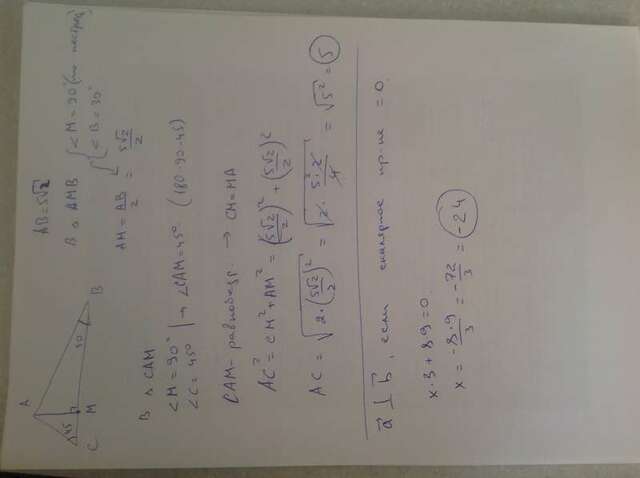 A
45
30
C
M
B
AB=5√2
В △ AMB { <M=90° (по постр.)
<B=30°
AM = AB/2 = 5√2/2
В △ CAM
<M=90° | → <CAM=45° (180-90-45)
<C=45°
CAM- равнобедр. → CM=MA
AC² = CM²+AM² = (5√2/2)² + (5√2/2)²
AC = √(2·(5√2/2)²) = √(2·5²·2/4) = √5² = 5
a ⊥ b, если скалярное пр-ие = 0.
x·3+8·9=0.
x = -8·9/3 = -72/3 = -24